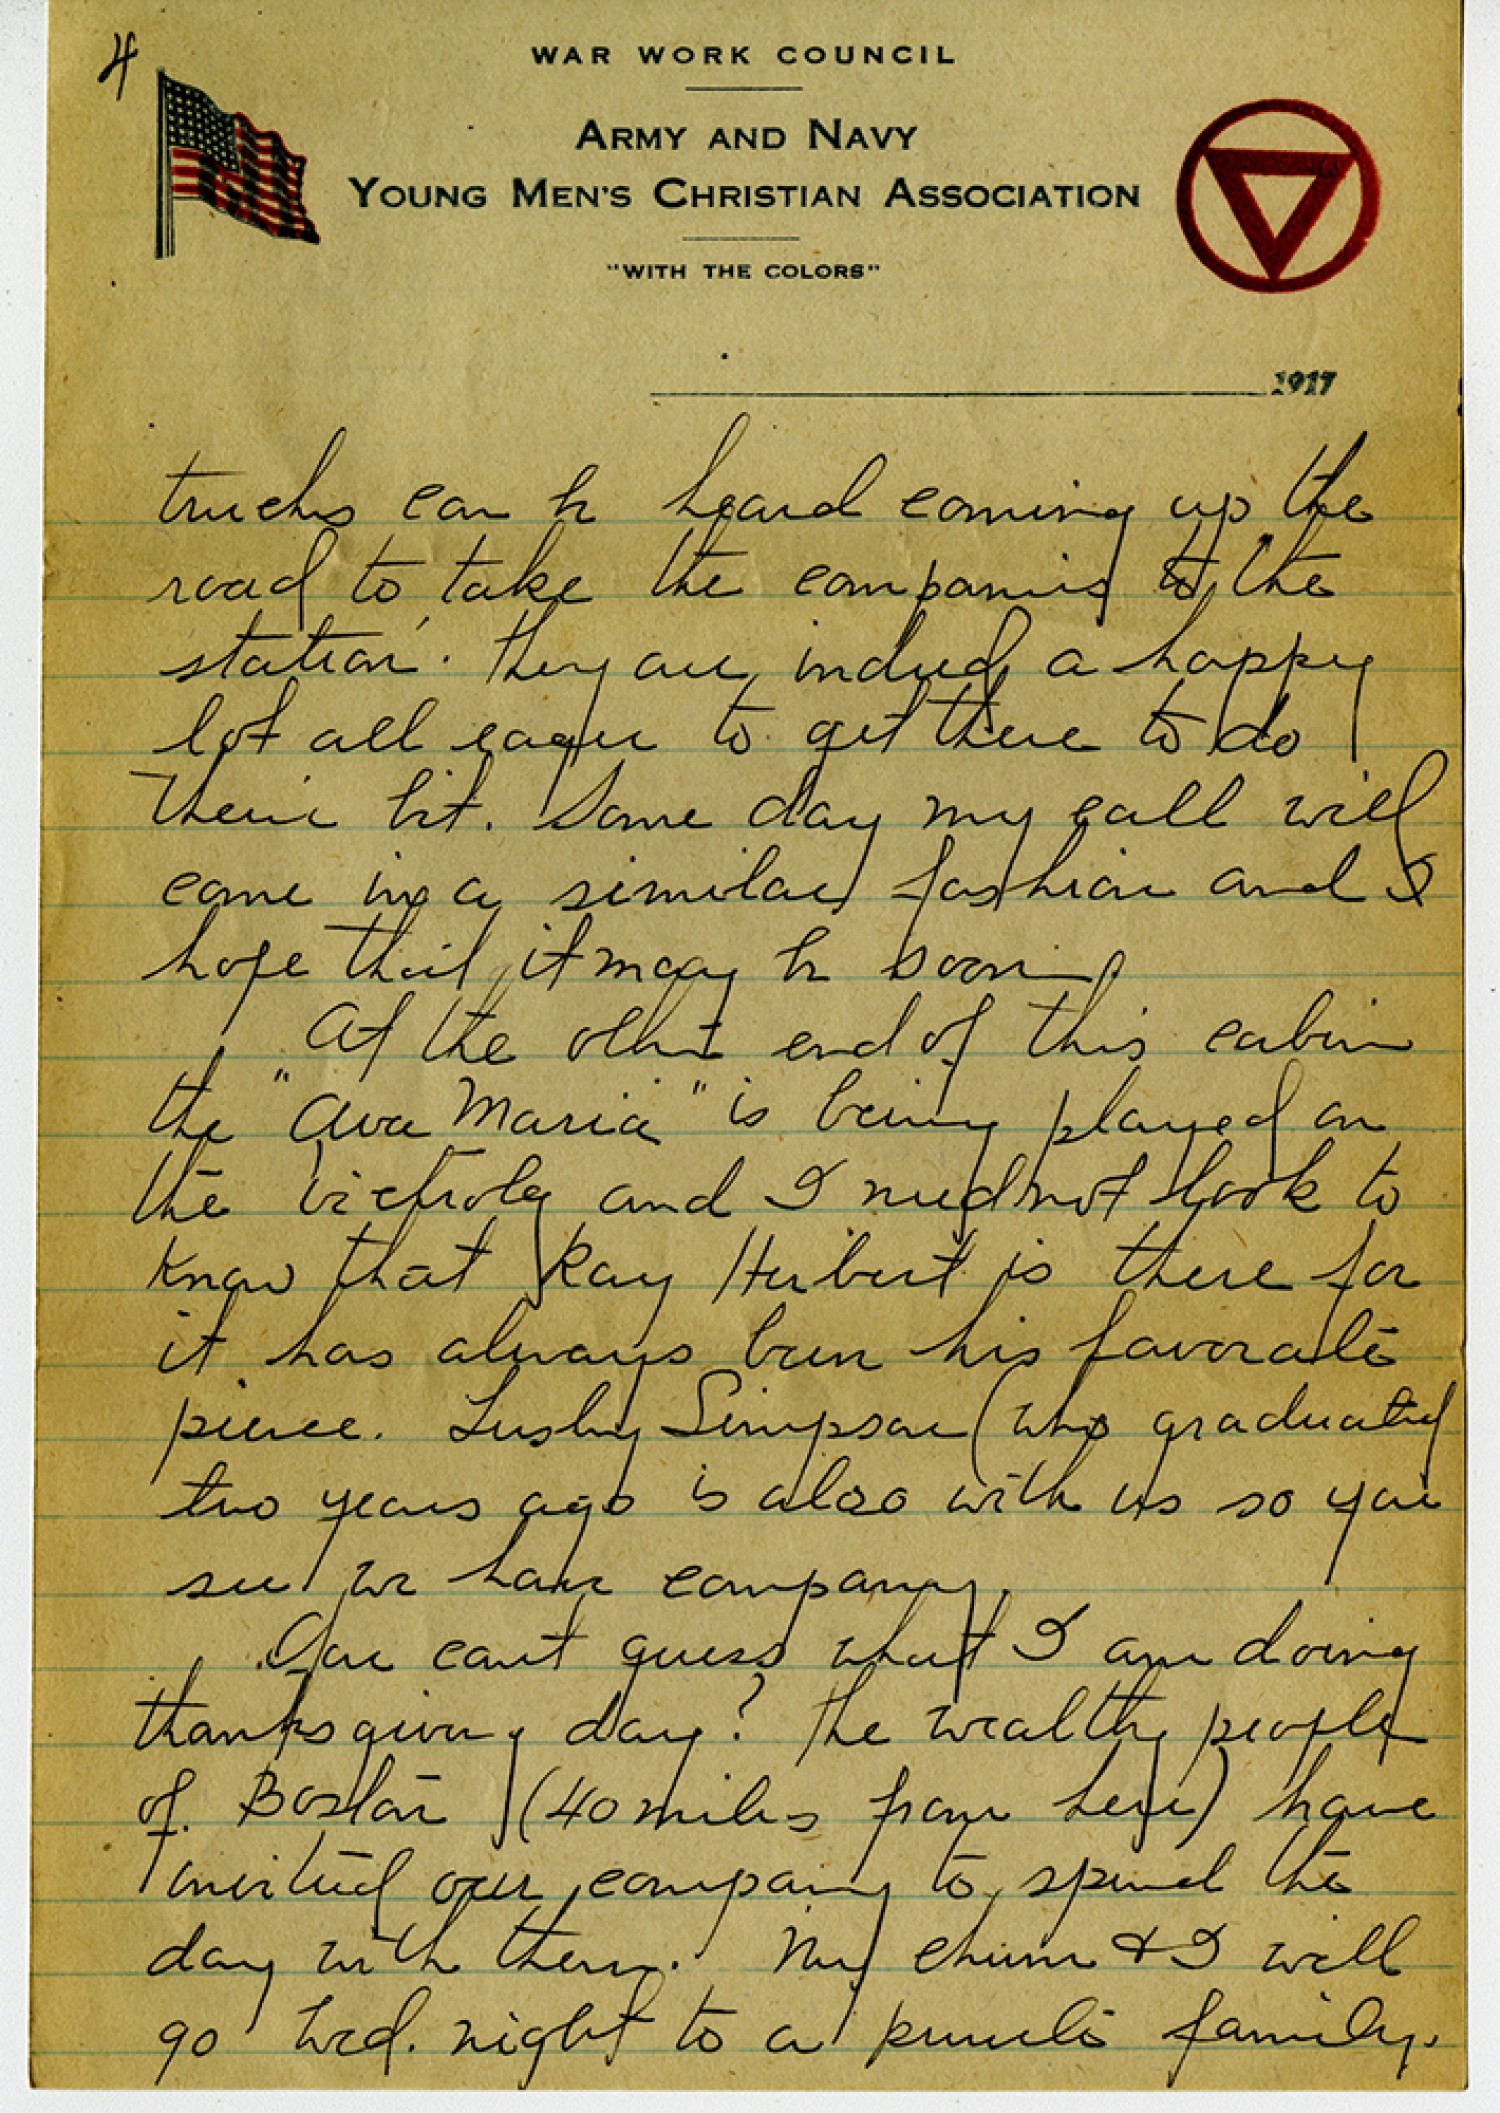 4
WAR WORK COUNCIL
ARMY AND NAVY
YOUNG MEN'S CHRISTIAN ASSOCIATION
"WITH THE COLORS"
1917
trucks can be heard coming up the
road to take the companies to the
station. They are indeed a happy
lot all eager to get there to do
their bit. Some day my call will
come in a similar fashion and I
hope that it may be soon.
At the other end of this cabin
the "Ava Maria" is being played on
the victrola and I need not look to
know that Ray Herbert is there for
it has always been his favorate
pieece. Lusby Simpson (who graduated
two years ago is also with us so you
see we have company.
You can't guess what I am doing
thanksgiving day? The wealthy people
of Boston (40 miles from here) have
invited our company to spend the
day with them. My chum & I will
go Wed. night to a private family.